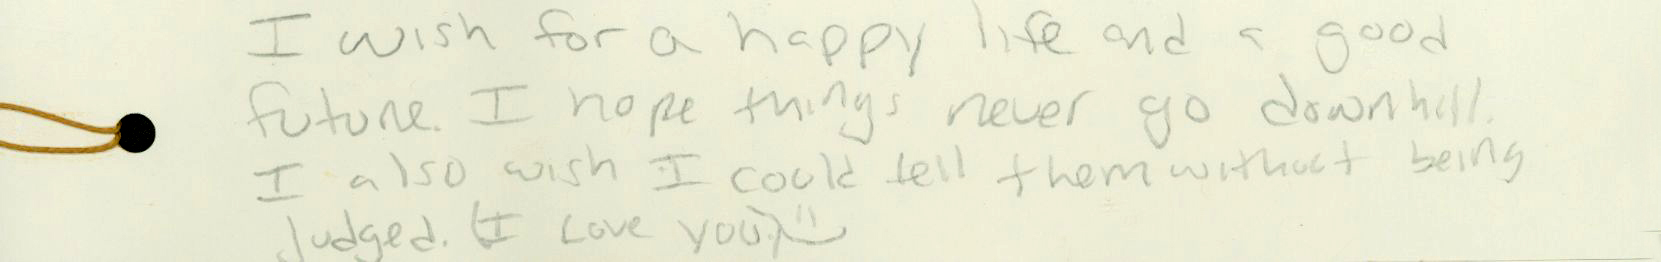 I wish for a happy life and a good
future. I hope things never go downhill.
I also wish I could tell them without being
judged. (I Love you) :)